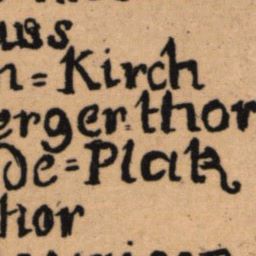 uss
n=Kirch
erger.thor
de=Platz
hor